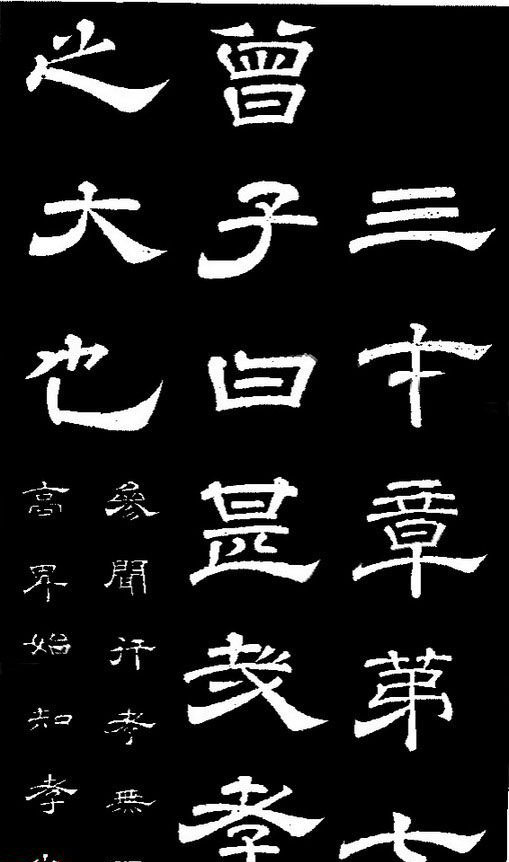 三才章第七
曾子曰甚哉孝
之大也
參聞行孝無
高卑始知孝